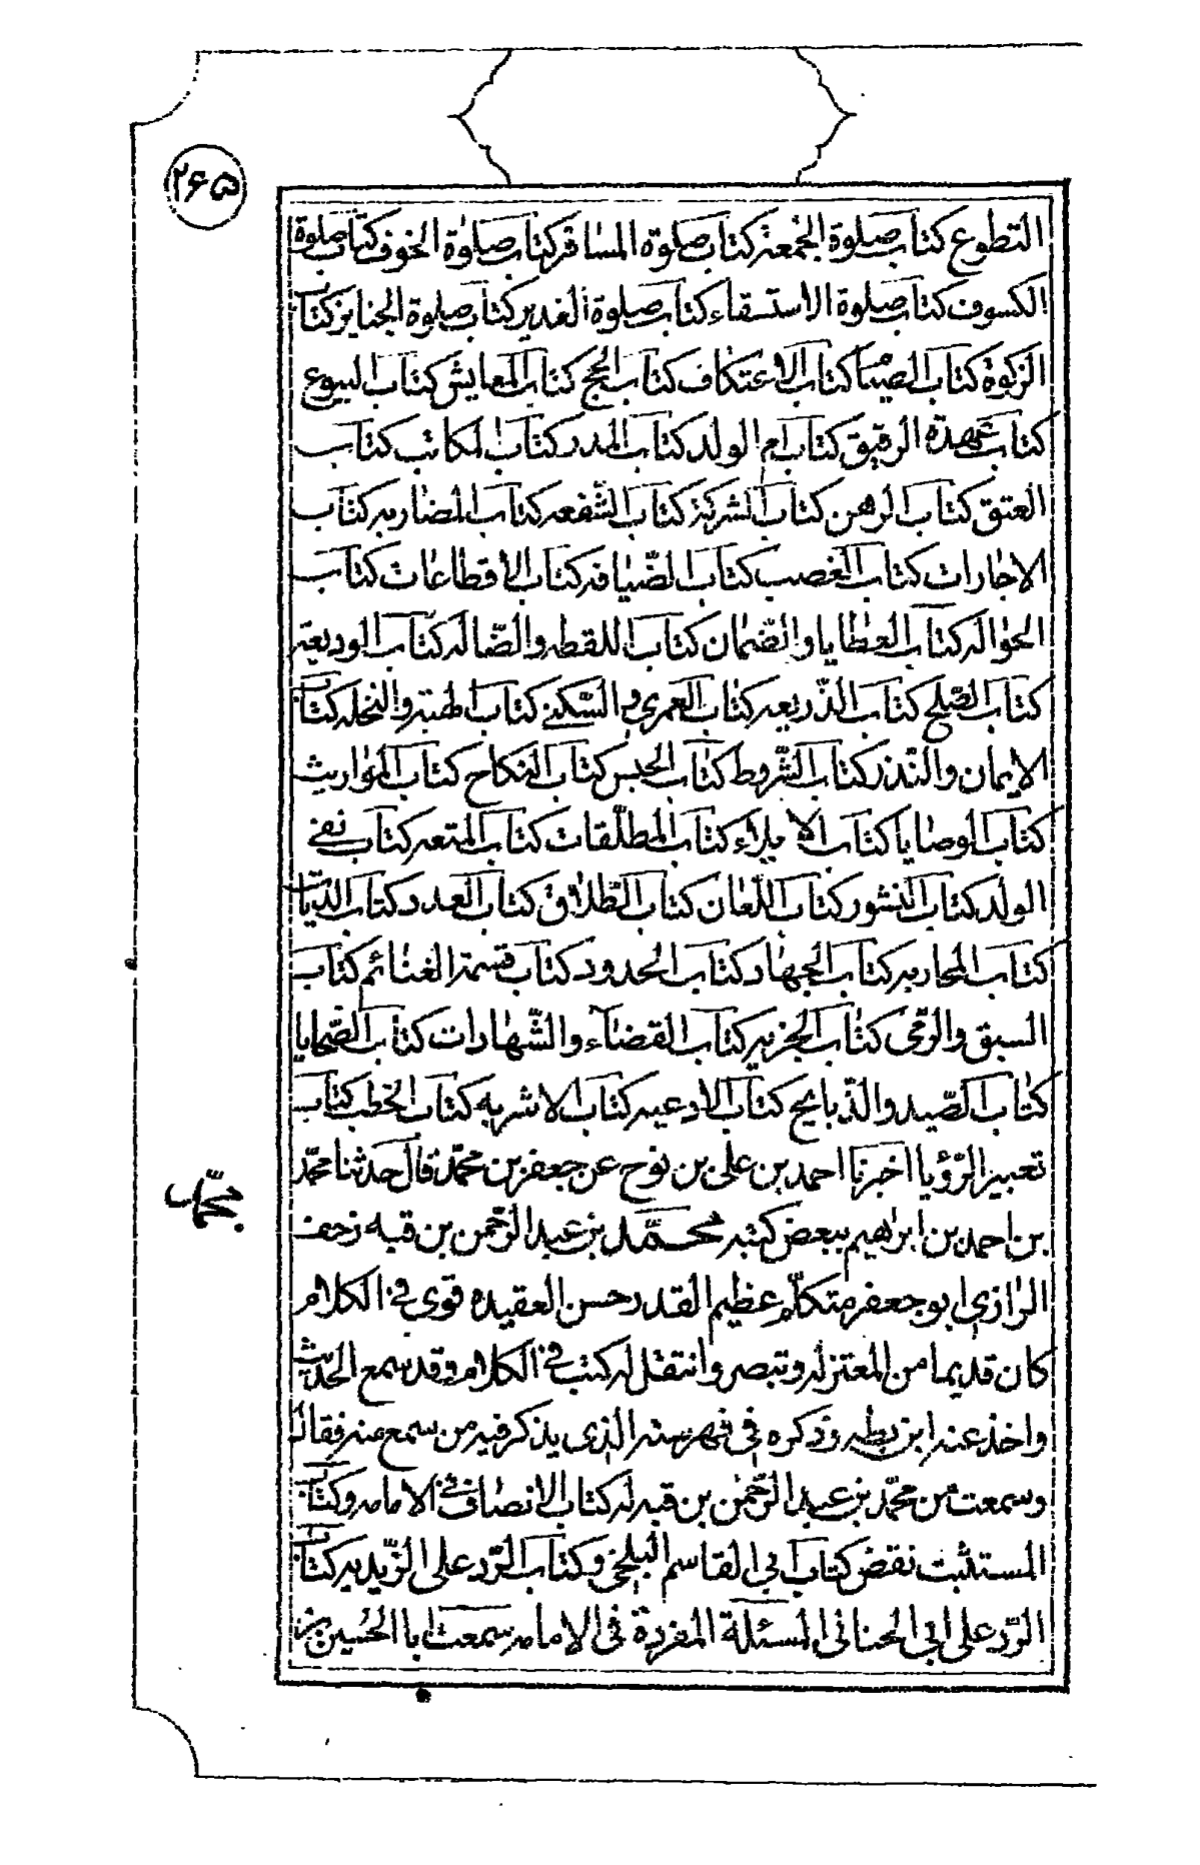 ۲۶۵
التطوع كتاب صلوة الجمعة كتاب صلوة المسافر كتاب صلوة الخوف كتاب صلوة
الكسوف كتاب صلوة الاستسقاء كتاب صلوة الغدير كتاب صلوة الجنايز كتاب
الزكوة كتاب الصيام كتاب الاعتكاف كتاب الحج كتاب المعايش كتاب البيوع
كتاب عهدة الرقيق كتاب ام الولد كتاب المدبر كتاب المكاتب كتاب
العتق كتاب الرهن كتاب الشركة كتاب الشفعه كتاب المضاربه كتاب
الاجارات كتاب الغصب كتاب الضيافه كتاب الاقطاعات كتاب
الحواله كتاب العطايا والضمان كتاب اللقطه والضاله كتاب الوديعة
كتاب الصلح كتاب الذريعه كتاب العمرى والسكنى كتاب الهبة والنحله كتاب
الايمان والنذر كتاب الشروط كتاب الحبس كتاب النكاح كتاب المواريث
كتاب الوصايا كتاب الايلاء كتاب المطلقات كتاب المتعه كتاب نفى
الولد كتاب النشوز كتاب اللعان كتاب الطلاق كتاب العدد كتاب الديات
كتاب المحاربه كتاب الجهاد كتاب الحدود كتاب قسمة الغنائم كتاب
السبق والرمى كتاب الجزيه كتاب القضاء والشهادات كتاب الضحايا
كتاب الصيد والذبايح كتاب الادعيه كتاب الاشربه كتاب الخطب كتاب
تعبير الرؤيا اخبرنا احمد بن على بن نوح عن جعفر بن محمد قال حدثنا محمد
محمد
بن احمد بن ابراهيم ببعض كتبه محمد بن عبد الرحمن بن قبه
الرازى ابو جعفر متكلم عظيم القدر حسن العقيده قوى فى الكلام
كان قديما من المعتزله وتبصر وانتقل له كتب فى الكلام وقد سمع الحديث
واخذ عنه ابن بطه وذكره فى فهرسته الذى يذكر فيه من سمع منه فقال
وسمعت من محمد بن عبد الرحمن بن قبه له كتاب الانصاف فى الامامه وكتاب
المستثبت نقض كتاب ابى القاسم البلخى وكتاب الرد على الزيديه كتاب
الرد على ابى المسئلة المفردة فى الامامه سمعت ابا الحسين بن